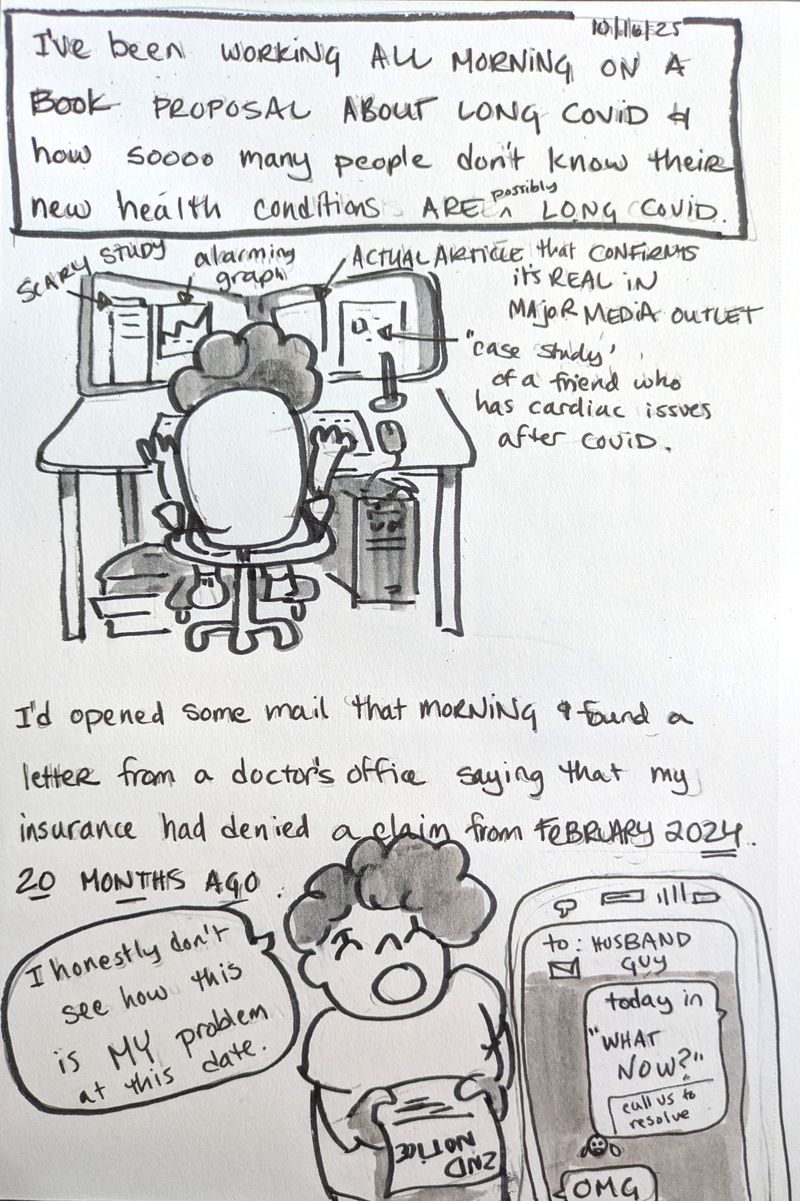 10/16/25
I've been WORKING ALL MORNING ON A
Book PROPOSAL ABOUT LONG COVID &
how soooo many people don't know their
new health conditions ARE ^possibly LONG COVID.
SCARY STUDY
alarming
graph
ACTUAL ARTICLE that CONFIRMS
it's REAL iN
MAJOR MEDIA OUTLET
"case study'
of a friend who
has cardiac issues
after COVID.
I'd opened some mail that MORNING & found a
letter from a doctor's office saying that my
insurance had denied a claim from FEBRUARY 2024.
20 MONTHS AGO.
I honestly don't
see how this
is MY problem
at this date.
2ND
NOTICE
to: HUSBAND
GUY
today in
"WHAT
NOW?"
call us to
resolve
OMG